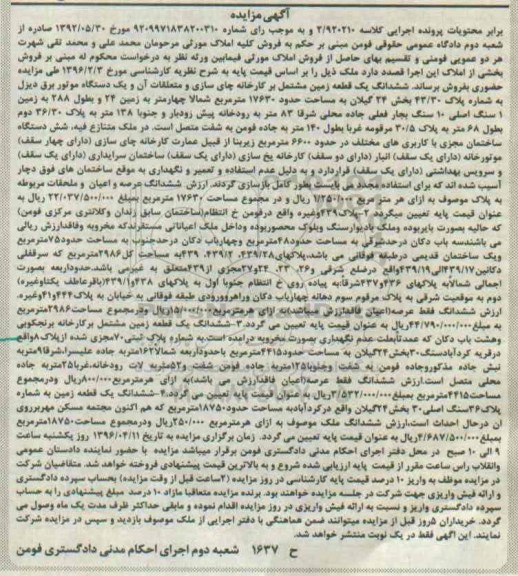 آگهی مزایده
برابر محتویات پرونده اجرایی کلاسه ۲/۹۲۰۲۱۰ و به موجب رای شماره ۹۲۰۹۹۷۱۸۳۸۲۰۰۳۱۰ مورخ ۱۳۹۲/۰۵/۳۰ صادره از
شعبه دوم دادگاه عمومی حقوقی فومن مبنی بر حکم به فروش کلیه املاک مورثی مرحومان محمد علی و محمد تقی شهرت
هر دو عمویی فومنی و تقسیم بهای حاصل از فروش املاک مورثی فیمابین ورثه نظر به درخواست محکوم له مبنی بر فروش
بخشی از املاک این اجرا قصدد دارد ملک ذیل را بر اساس قیمت پایه به شرح نظریه کارشناسی مورخ ۱۳۹۶/۲/۳ طی مزایده
حضوری بفروش برساند. ششدانگ یک قطعه زمین مشتمل بر کارخانه چای سازی و متعلقات آن و یک دستگاه موتور برق دیزل
به شماره پلاک ۴۳/۳۰ بخش ۲۴ گیلان به مساحت حدود ۱۷۶۳۰ مترمربع شمالا چهارمتر به زمین ۲۴ و بطول ۲۸۸ به زمین
۱ سنگ اصلی ۱۰ سنگ بجار فعلی جاده محلی شرقا ۸۳ متر به رودخانه پیش زودبار و جنوبا ۱۳۸ متر به پلاک ۳۶/۳۰ دوم
بطول ۶۸ متر به پلاک ۳۰/۵ مرقومه غربا بطول ۱۴۰ متر به جاده فومن به شفت متصل است. در ملک متنازع فیه، شش دستگاه
ساختمان مجزی با کاربری های مختلف در حدود ۶۶۰۰ مترمربع زیربنا از قبیل عمارت کارخانه چای سازی (دارای چهار سقف)
موتورخانه (دارای یک سقف) انبار (دارای دو سقف) کارخانه یخ سازی (دارای یک سقف) ساختمان سرایداری (دارای یک سقف)
و سرویس بهداشتی (دارای یک سقف) قراردارد و به دلیل عدم استفاده و تعمیر و نگهداری به موقع ساختمان های فوق دچار
آسیب شده اند که برای استفاده مجدد می بایست بطور کامل بازسازی گردند. ارزش ششدانگ عرصه و اعیان و ملحقات مربوطه
به پلاک موصوف به ازای هر متر مربع ۱/۲۵۰/۰۰۰ ریال و در مجموع مساحت ۱۷۶۳۰ مترمربع بمبلغ ۲۲/۰۳۷/۵۰۰/۰۰۰ ریال به
عنوان قیمت پایه تعیین میگردد ۲-پلاک۴۳۹وغیره واقع درفومن خ انتظام(ساختمان سابق زندان وکلانتری مرکزی فومن)
که حالیه بصورت بایربوده وملک بادیوارسنگ وبلوک محصوربوده وداخل ملک اعیاناتی مستقرندکه مخروبه وفاقدارزش ریالی
می باشندسه باب دکان درحدشرقی به مساحت حدود۴۸مترمربع وچهارباب دکان درحدجنوب به مساحت حدود۷۵مترمربع
ویک ساختمان قدیمی درطبقه فوقانی می باشد.پلاکهای۴۳۹/۲۸، ۴۳۹/۱، ۴۳۹به مساحت کل۲۹۸۶مترمربع که سرقفلی
دکاکین۴۳۹/۱۷الی۴۳۹/۱۹واقع درضلع شرقی و۲۶، ۲۳، ۲۴و۲۷مجزی از۴۳۹متعلق به غیرمی باشد.حدوداربعه بصورت
اجمالی شمالاًبه پلاکهای ۴۳۶و۴۳۷شرقاًبه پیاده روی خ انتظام جنوبا اول به پلاکهای ۴۳۸و۴۳۹/۱(باقرعاطف یکتاوغیره)
دوم به موقعیت شرقی به پلاک مرقوم سوم دهانه چهارباب دکان وراهروورودی طبقه فوقانی به خیابان به پلاک۴۴۴و۴۱وغیره.
ارزش ششدانگ فقط عرصه(اعیان فاقدارزش میباشد)به ازای هرمترمربع۱۵/۰۰۰/۰۰۰ریال ودرمجموع مساحت۲۹۸۶مترمربع
به مبلغ۴۴/۷۹۰/۰۰۰/۰۰۰ریال به عنوان قیمت پایه تعیین می گردد.۳-ششدانگ یک قطعه زمین مشتمل برکارخانه برنجکوبی
وهشت باب دکان که عمدتابعلت عدم نگهداری بصورت مخروبه درآمده است.به شماره پلاک ثبتی۷۰مجزی شده ازپلاک۸واقع
درقریه کردآبادسنگ۳۰بخش۲۴گیلان به مساحت حدود۴۴۱۵مترمربع باحدوداربعه شمالا۱۶۲متربه جاده علیسرا،شرقا۹متربه
نبش جاده مذکوروجاده فومن به شفت وجنوبا۱۲۵متربه جاده فومن شفت و۵۲متربه لات رودخانه،غربا۳۵متربه جاده
محلی متصل است.ارزش ششدانگ فقط عرصه(اعیان فاقدارزش می باشد)به ازای هرمترمربع۸۰۰/۰۰۰ریال ودرمجموع
مساحت۴۴۱۵مترمربع بمبلغ۳/۵۳۲/۰۰۰/۰۰۰ریال به عنوان قیمت پایه تعیین می گردد.۴-ششدانگ یک قطعه زمین به شماره
پلاک۳۶سنگ اصلی۳۰ بخش۲۴گیلان واقع درکردآبادبه مساحت حدود۱۸۷۵۰مترمربع که هم اکنون مجتمع مسکن مهربرروی
ان درحال احداث است.ارزش ششدانگ ملک موصوف به ازای هرمترمربع ۲۵۰/۰۰۰ریال ودرمجموع مساحت۱۸۷۵۰مترمربع
بمبلغ۴/۶۸۷/۵۰۰/۰۰۰ریال به عنوان قیمت پایه تعیین می گردد. زمان برگزاری مزایده به تاریخ ۱۳۹۶/۰۴/۱۱ روز یکشنبه ساعت
۹ الی ۱۰ صبح در محل دفتر اجرای احکام مدنی دادگستری فومن برقرار میباشد مزایده با حضور نماینده دادستان عمومی
وانقلاب راس ساعت مقرر از قیمت پایه ارزیابی شده شروع و به بالاترین قیمت پیشنهادی فروخته خواهد شد. متقاضیان شرکت
در مزایده موظف به واریز ۱۰ درصد قیمت پایه کارشناسی در روز مزایده (۲ساعت قبل از وقت مزایده) بحساب سپرده دادگستری
و ارائه فیش واریزی جهت شرکت در جلسه مزایده خواهند بود. برنده مزایده متعاقبا مازاد ۱۰ درصد مبلغ پیشنهادی را به حساب
سپرده دادگستری واریز و نسبت به ارائه فیش واریزی در روز مزایده اقدام نموده و مابقی حداکثر ظرف مدت یک ماه وصول می
گردد. خریداران ۵روز قبل از مزایده میتوانند ضمن هماهنگی با دفتر اجرایی از ملک موصوف بازدید و سپس در مزایده شرکت
نمایند. این آگهی فقط در یک نوبت منتشر خواهد شد.
ح ۱۶۳۷ شعبه دوم اجرای احکام مدنی دادگستری فومن